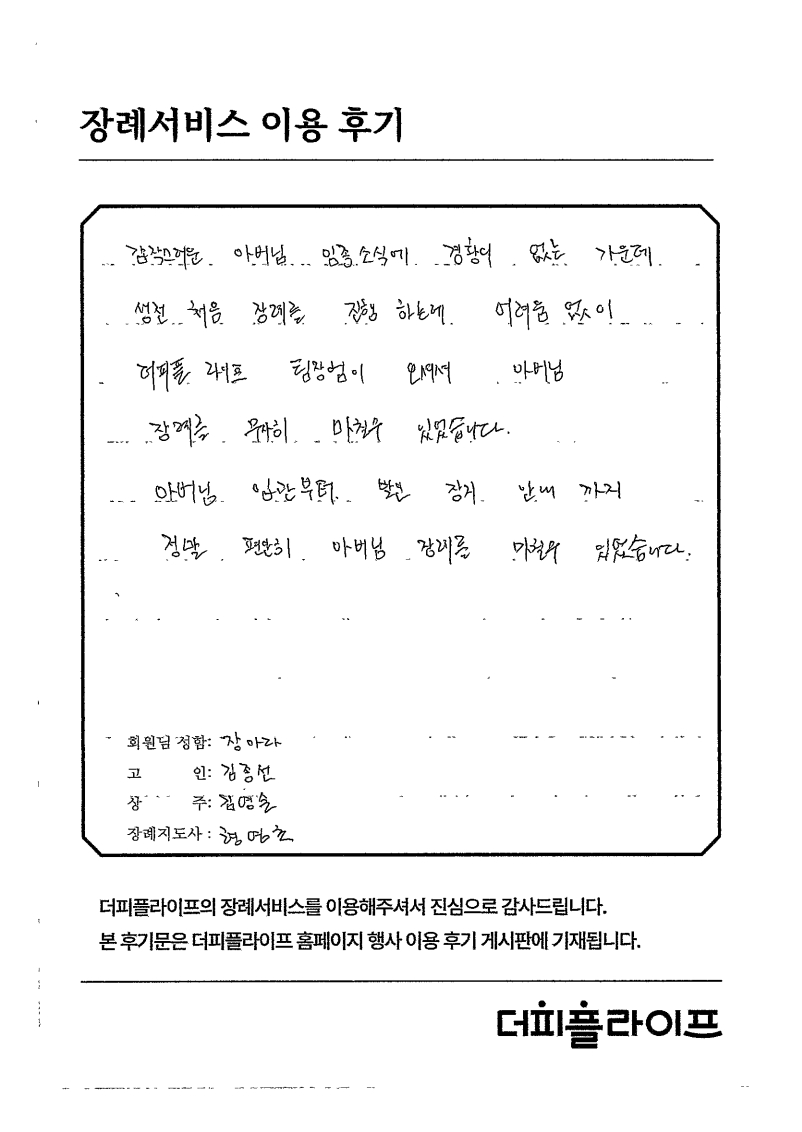 장례서비스 이용 후기
갑작스러운 아버님 임종 소식에 경황이 없는 가운데
생전 처음 장례를 진행 하는데 어려움 없이
더피플 라이프 팀장님이 오셔서 아버님
장례를 무사히 마칠수 있었습니다.
아버님 입관부터 발인 장지 안내 까지
정말 편안히 아버님 장례를 마칠수 있었습니다.
회원님 성함: 장아라
고 인: 김종선
상 주:
장례지도사 :
더피플라이프의 장례서비스를 이용해주셔서 진심으로 감사드립니다.
본 후기문은 더피플라이프 홈페이지 행사 이용 후기 게시판에 기재됩니다.
더피플라이프